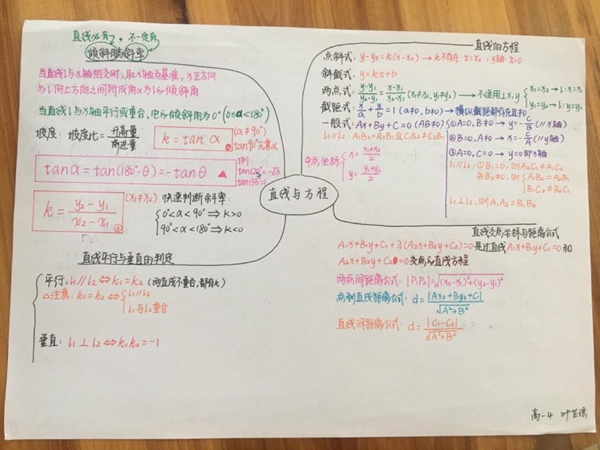 直线必有,不一定有
倾斜角与斜率
当直线l与x轴相交时,取x轴为基准,x正方向
与l向上方向之间所成角α为l倾斜角
当直线l与x轴平行或重合,把l倾斜角为0°(0≤α<180°)
坡度:坡度比=升高量/前进量
k=tanα
(α≠90°)
tan90°无意义
tanα=tan(180°-θ)=-tanθ
k=(y₂-y₁)/(x₂-x₁)
(x₁≠x₂)
快速判断斜率:
0°<α<90°⇒k>0
90°<α<180°⇒k<0
直线平行与垂直的判定
平行:l₁//l₂⇔k₁=k₂(两直线不重合,都有k)
△注意:k₁=k₂⇔
l₁//l₂
l₁与l₂重合
垂直:l₁⊥l₂⇔k₁k₂=-1
直线与方程
直线的方程
点斜式:y-y₀=k(x-x₀)→k不存在:x=x₀
斜截式:y=kx+b
两点式:(y-y₁)/(y₂-y₁)=(x-x₁)/(x₂-x₁)(x₁≠x₂,y₁≠y₂)→不适用⊥x,y
x₁=x₂→l:x=x₁
y₁=y₂→l:y=y₁
截距式:x/a+y/b=1(a≠0,b≠0)→横纵截距都存在且≠0
一般式:Ax+By+C=0
①A=0,B≠0→y=-C/B(//x轴)
②B=0,A≠0→x=-C/A(//y轴)
③A=0,C=0→y=0即x轴
中点坐标
x=(x₁+x₂)/2
y=(y₁+y₂)/2
直线交点坐标与距离公式
A₁x+B₁y+C₁+λ(A₂x+B₂y+C₂)=0是过直线A₁x+B₁y+C₁=0和
A₂x+B₂y+C₂=0交点的直线方程
两点间距离公式:|P₁P₂|=√(x₂-x₁)²+(y₂-y₁)²
点到直线距离公式:d=|Ax₀+By₀+C|/√A²+B²
直线间距离公式:d=|C₁-C₂|/√A²+B²
高一4